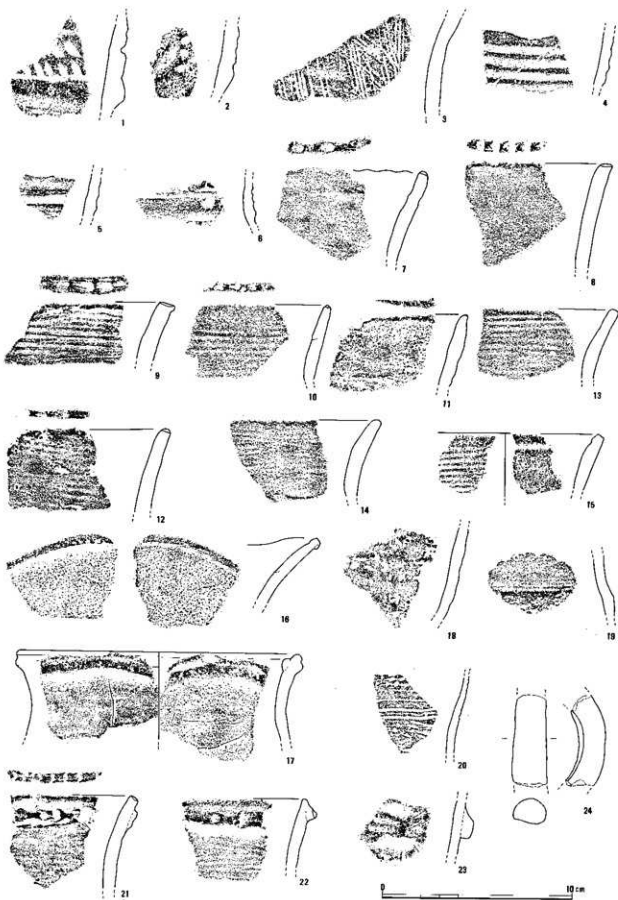 1 2 3 4
5 6 7 8
9 10 11 13
12 14 15
16 18 19
17 20 24
21 22 23
0 10 cm